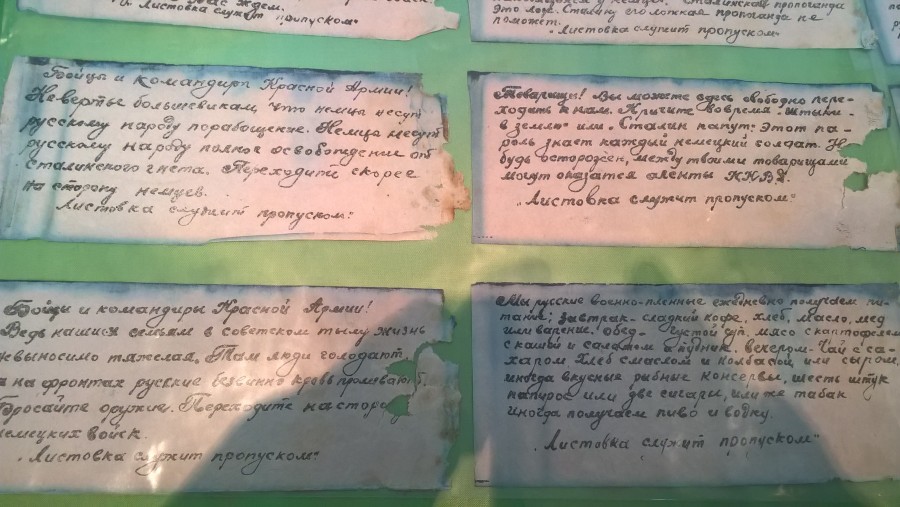 вас ждем.
Листовка служит пропуском"
Сталинская пропаганда
Это ложь. Сталину его ложная пропаганда не
поможет.
"Листовка служит пропуском"
Бойцы и командиры Красной Армии!
Не верьте большевикам, что немцы несут
русскому народу порабощение. Немцы несут
русскому народу полное освобождение от
сталинского гнета. Переходите скорее
на сторону немцев.
Листовка служит пропуском"
Товарищи! Вы можете здесь свободно пере-
ходить к нам. Кричите вовремя "штыки
в землю" или "Сталин капут". Этот па-
роль знает каждый немецкий солдат. Но
будь осторожен, между твоими товарищами
могут оказатся агенты НКВД.
"Листовка служит пропуском"
Бойцы и командиры Красной Армии!
Ведь нашим семьям в советском тылу жизнь
невыносимо тяжелая. Там люди голодают
а на фронтах русские безвинно кровь проливают.
Бросайте оружие. Переходите на сторо
немецких войск.
"Листовка служит пропуском"
Мы русские военно-пленные ежедневно получаем пи-
тание; завтрак - сладкий кофе, хлеб, масло, мед
или варение, обед - густой суп, мясо с каптофелем
с кашой и салатом пудинг. вечером - чай с са-
харом хлеб смаслом и колбасой, или сыром,
иногда вкусные рыбные консервы, шесть штук
папирос или две сигары, или же табак
иногда получаем пиво и водку.
"Листовка служит пропуском"